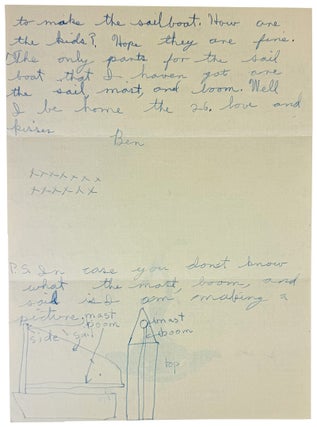 to make the sailboat. How are
the kids? Hope they are fine.
The only parts for the sail
boat that I haven got are
the sail, mast, and boom. Well
I be home the 26. love and
kisses
Ben
xxxxxxx
xxxxxxx
P.S. In case you don't know
what the mast, boom, and
sail is I am making a
picture.
mast
boom
side
sail
mast
boom
top